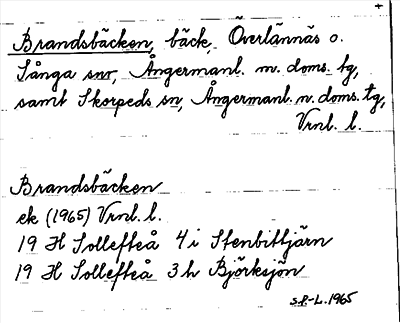 Brandsbäcken, bäck, Överlännäs o.
Sånga snr, Ångermanl. m. doms. tg,
samt Skorpeds sn, Ångermanl. n. doms. tg,
Vrnl. l.
Brandsbäcken
ek (1965) Vrnl. l.
19 H Sollefteå 4 i Stenbittjärn
19 H Sollefteå 3 h Björksjön
S.P-L. 1965